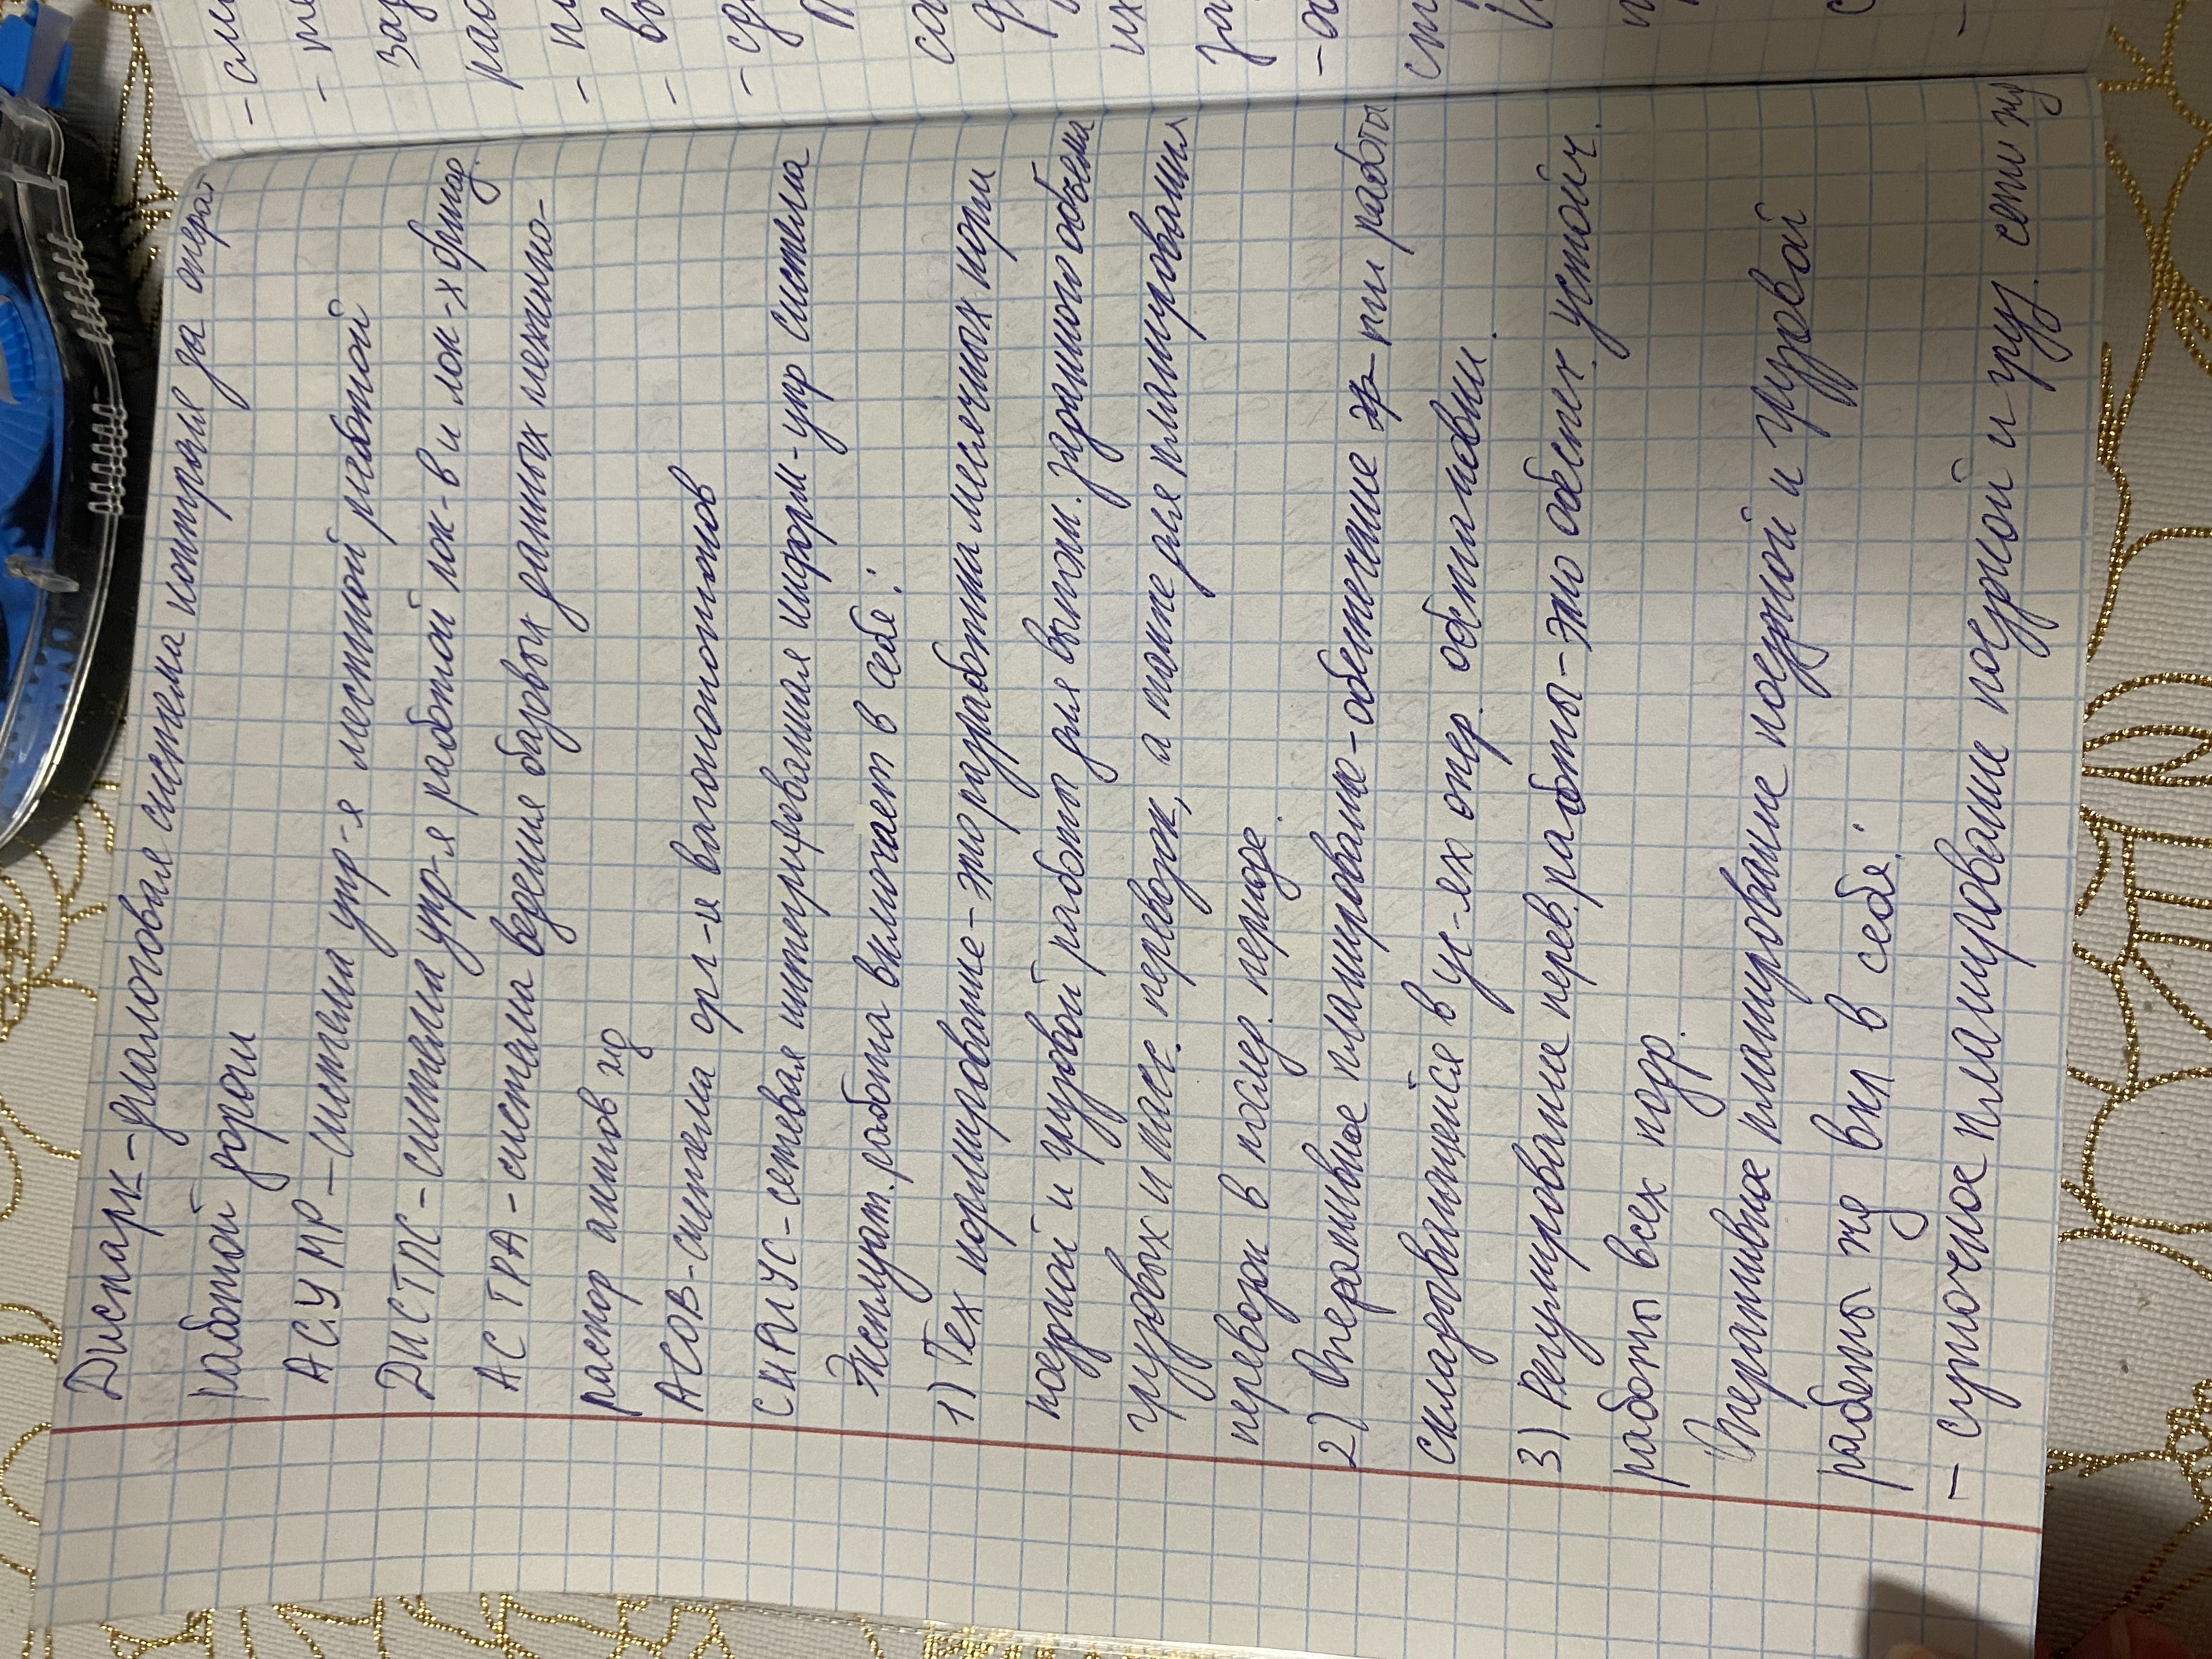 Диспарк-диалоговая система контроля за опера
работой дорог
АСУМР - система упр-я местной работой
ДИСТПС - система упр-я работой лок-в и лок-х бригад.
АС ТРА - система ведения базовых данных технико-
распор актов жд
АСОВ-система орг-и вагонопотоков
СИРИУС-сетевая интегрированная информ-упр система
Эксплуат. работа включает в себя:
1) Тех нормирование-это разработка месячных норм
поездной и грузовой работы для выполн. заданного объема
грузовых и пасс. перевозок, а также для планирования
перевозок в послед. периоде.
2) Оперативное планирование-обеспечение пи работы
складывающейся в ус-ях опер. обстановки.
3) Регулирование перев. работы-это обеспеч. устойч.
работы всех подр.
Оперативное планирование поездной и грузовой
работы жд вкл в себя:
- суточное планирование поездной и груз. сети жд